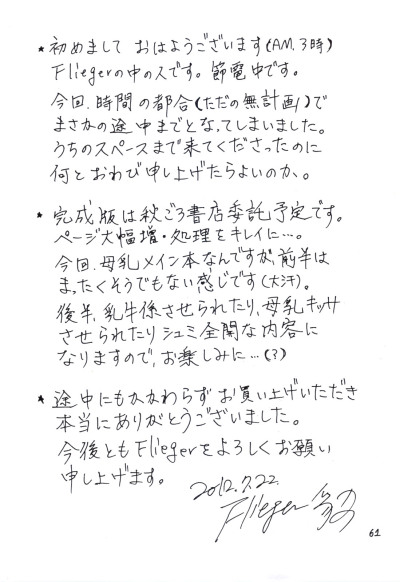 *初めまして おはようございます(AM.3時)
Fliegerの中の人です。節電中です。
今回、時間の都合(ただの無計画)で
まさかの途中までとなってしまいました。
うちのスペースまで来てくださったのに
何とおわび申し上げたらよいのか、
*完成版は秋ごろ書店委託予定です。
ページ大幅増・処理をキレイに…。
今回、母乳メイン本なんですが、前半は
まったくそうでもない感じです(大汗)。
後半、乳牛係させられたり、母乳キッサ
させられたりシュミ全開な内容に
なりますので、お楽しみに…(?)
*途中にもかかわらずお買い上げいただき
本当にありがとうございました。
今後ともFliegerをよろしくお願い
申し上げます。
2012.7.22.
Flieger
61